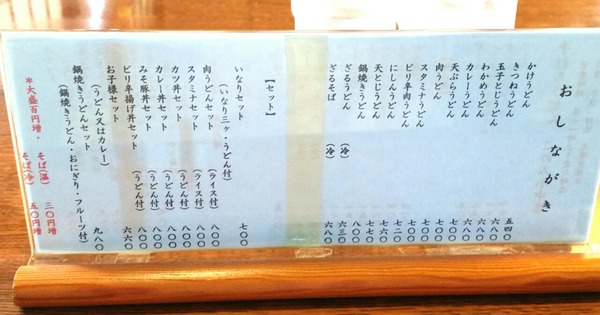 おしながき
かけうどん 五四〇
きつねうどん 六八〇
玉子とじうどん 六八〇
わかめうどん 六八〇
カレーうどん 六八〇
天ぷらうどん 七〇〇
肉うどん 七〇〇
スタミナうどん 七〇〇
ピリ辛肉うどん 七二〇
にしんうどん 七六〇
天とじうどん 七七〇
鍋焼きうどん
ざるうどん (冷) 六三〇
ざるそば (冷) 六八〇
【セット】
いなりセット 七〇〇
(いなり三ヶ・うどん付)
肉うどんセット (ライス付) 八〇〇
スタミナセット (ライス付) 八〇〇
カツ丼セット (うどん付) 八〇〇
カレー丼セット (うどん付) 八〇〇
みそ豚丼セット (うどん付) 八〇〇
ピリ辛揚げ丼セット (うどん付) 八〇〇
お子様セット 六六〇
(うどん又はカレー)
鍋焼きうどんセット 九八〇
(鍋焼きうどん・おにぎり・フルーツ付)
*大盛百円増・ そば(温) 三〇円増
そば(冷) 五〇円増